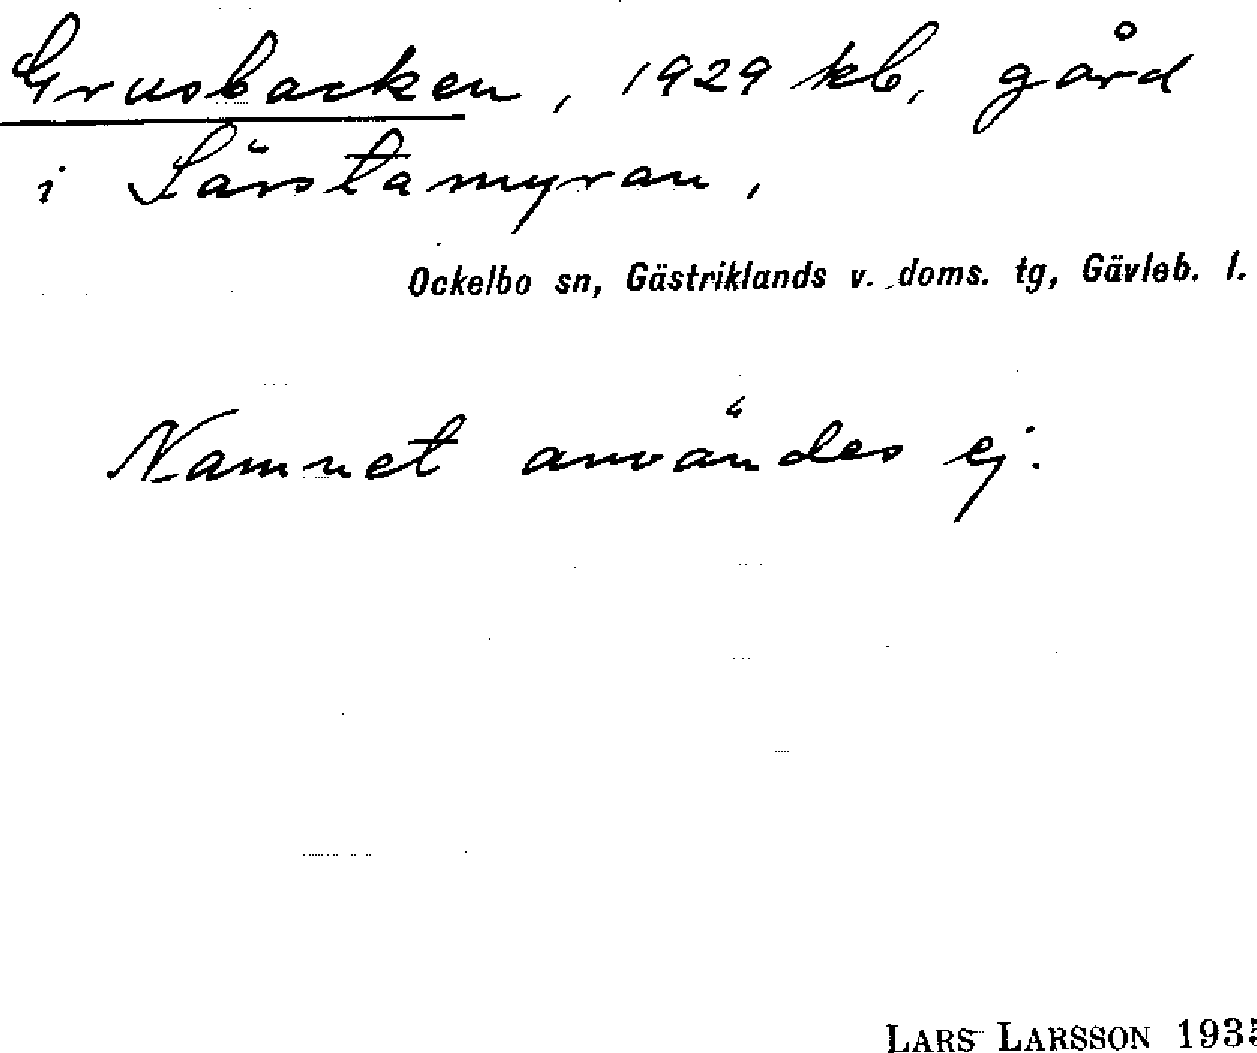 Grusbacken, 1929 kb, gård
i Särstamyran,
Ockelbo sn, Gästriklands v. doms. tg, Gävleb. l.
Namnet användes ej.
LARS LARSSON 1935